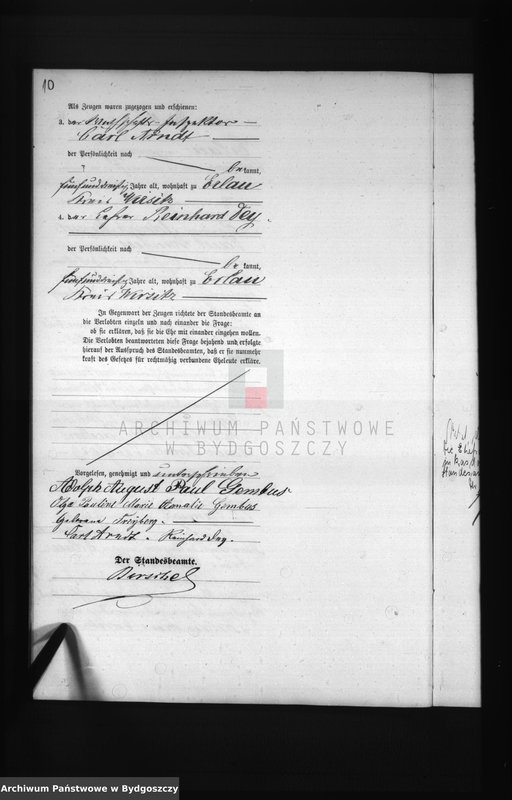 10
Als Zeugen waren zugezogen und erschienen:
3. der Wirthschafts-Inspektor
Carl Arndt
der Persönlichkeit nach
bekannt,
fünfunddreißig Jahre alt, wohnhaft zu Erlau
Kreis Wirsitz
4. der Lehrer Reinhard Dey.
der Persönlichkeit nach
bekannt,
Jahre alt, wohnhaft zu Erlau
Kreis Wirsitz
In Gegenwart der Zeugen richtete der Standesbeamte an
die Verlobten einzeln und nach einander die Frage:
ob sie erklären, daß sie die Ehe mit einander eingehen wollen.
Die Verlobten beantworteten diese Frage bejahend und erfolgte
hierauf der Ausspruch des Standesbeamten, daß er sie nunmehr
kraft des Gesetzes für rechtmäßig verbundene Eheleute erkläre.
ARCHIWUM PAŃSTWOWE
W BYDGOSZCZY
Vorgelesen, genehmigt und unterschrieben
Adolph August Paul Gembus
Olga Pauline Marie Rosalie Gembus
geborene Freyberg.
Carl Arndt. Reinhard Dey.
Der Standesbeamte.
Archiwum Państwowe w Bydgoszczy